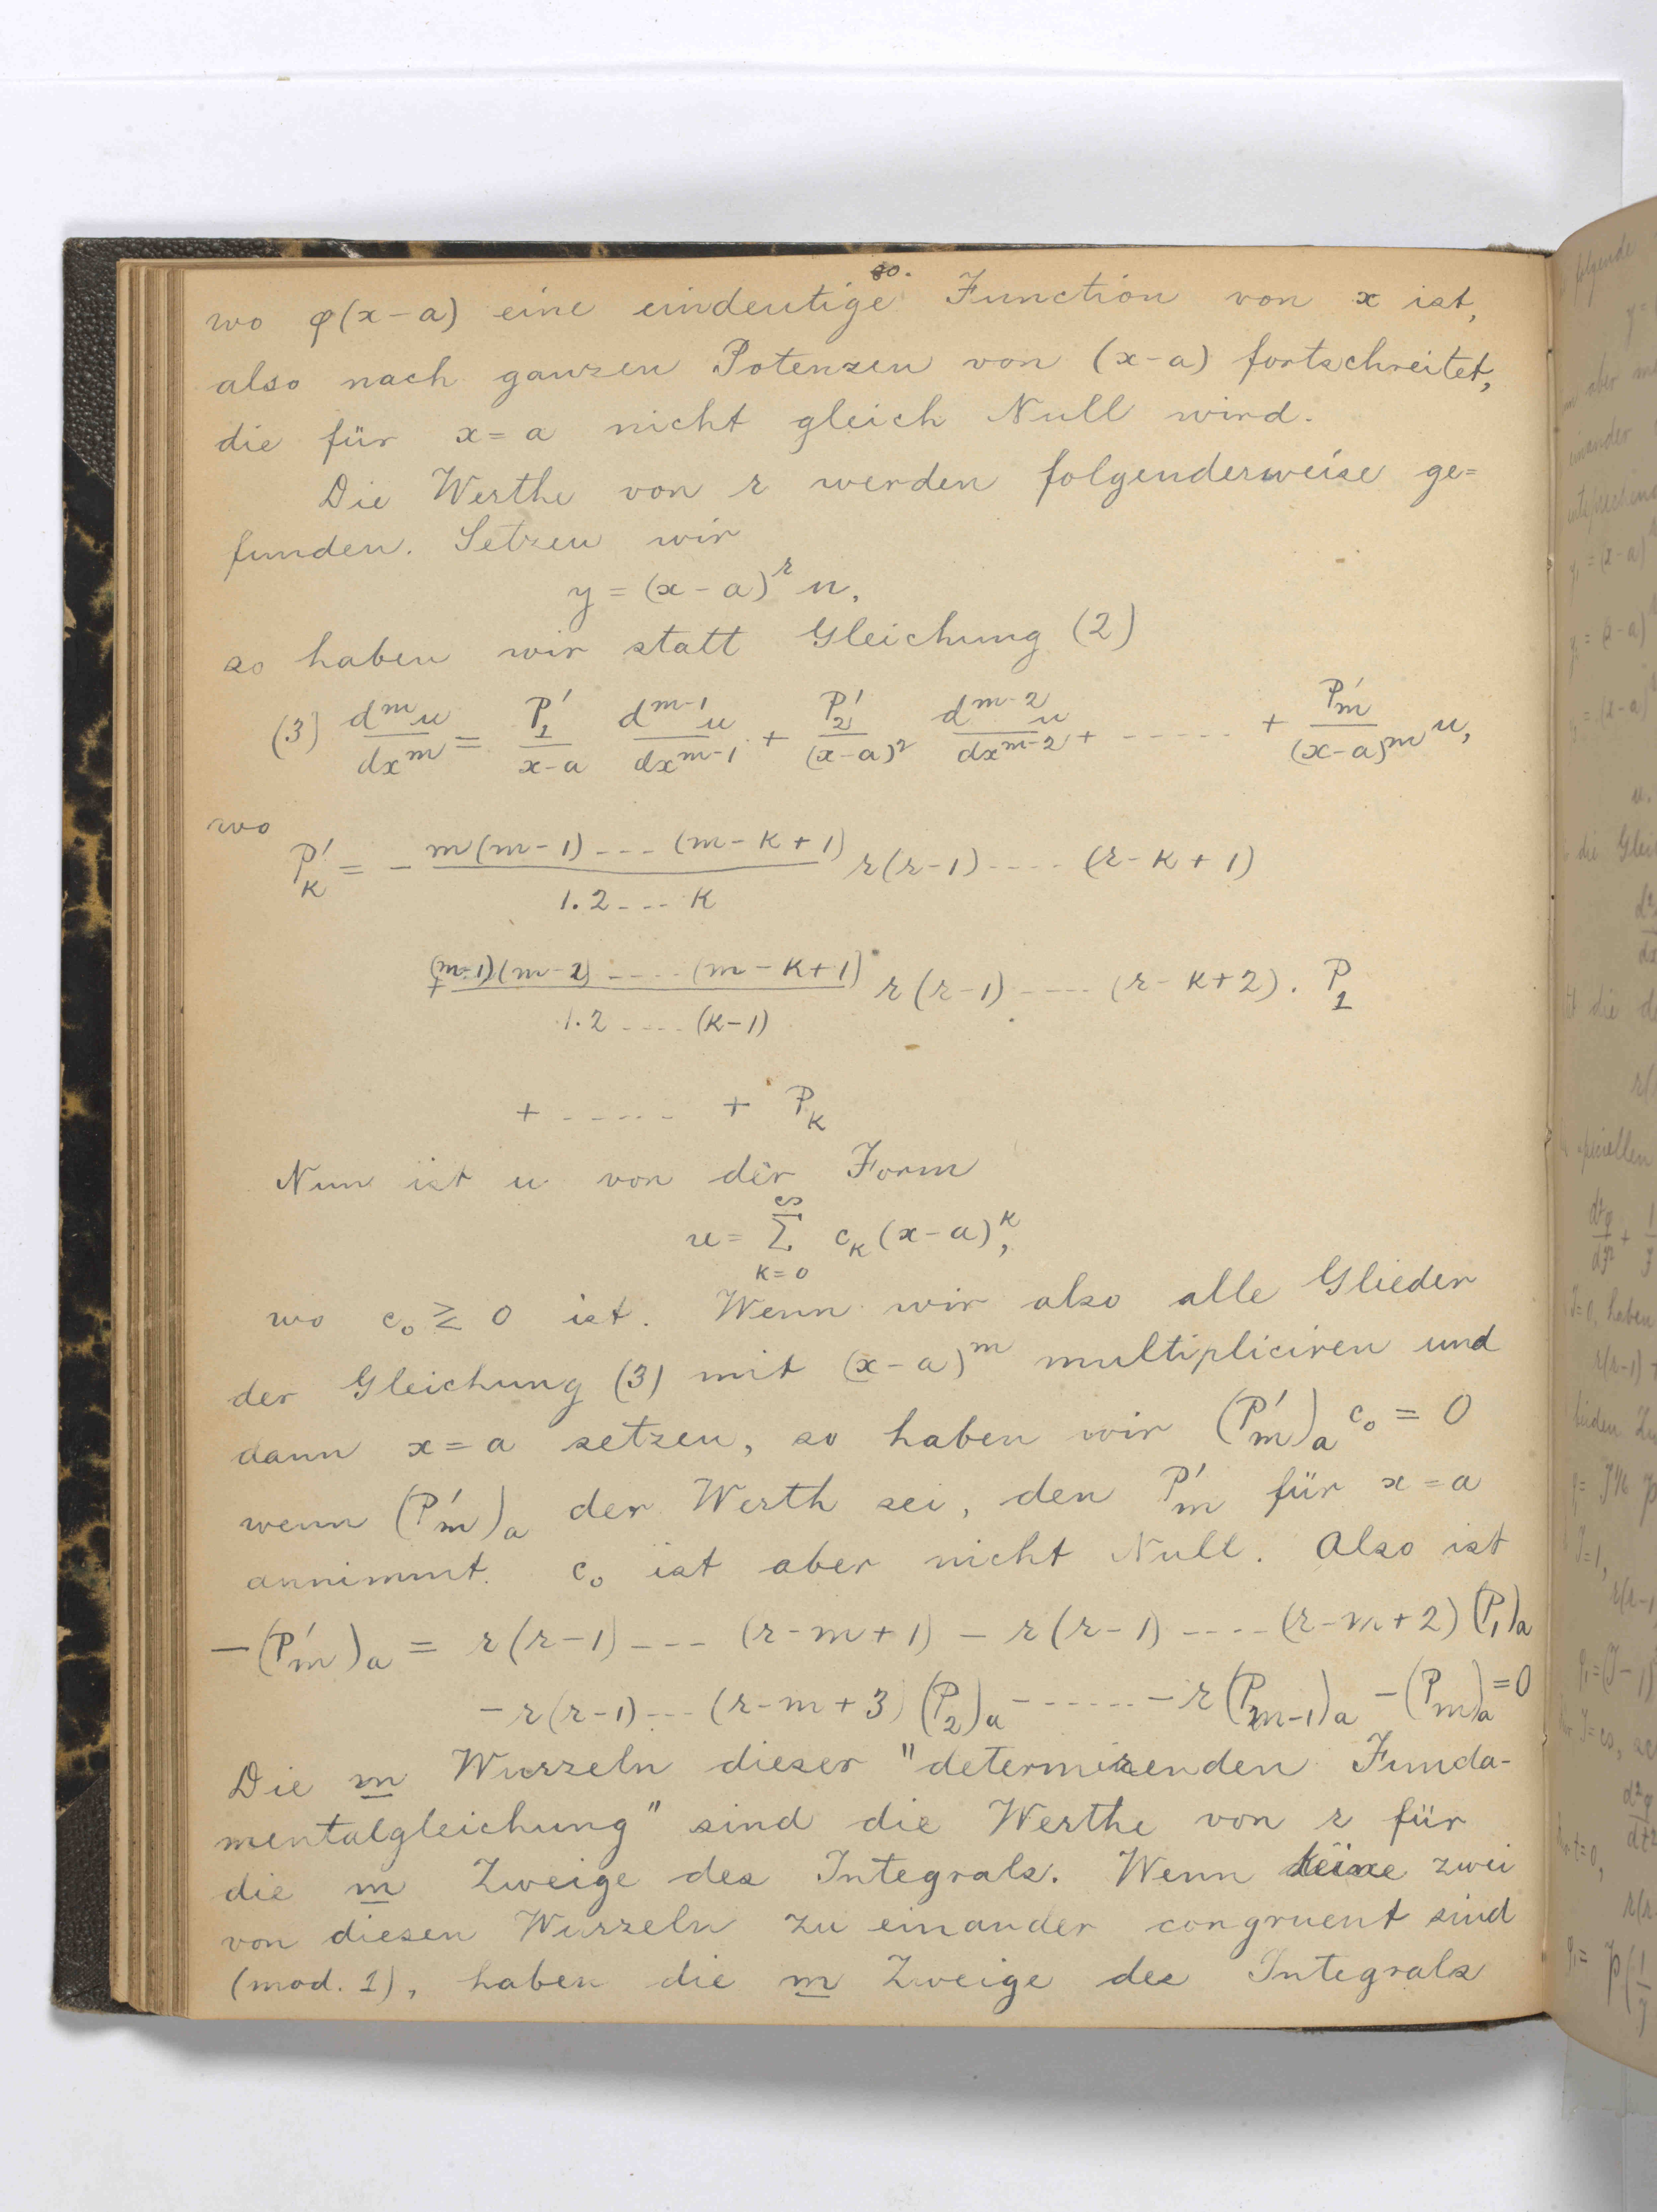 80.
wo φ(x-a) eine eindeutige Function von x ist,
also nach ganzen Potenzen von (x-a) fortschreitet,
die für x=a nicht gleich Null wird.
Die Werthe von r werden folgenderweise ge=
funden. Setzen wir
y = (x-a)^r u,
so haben wir statt Gleichung (2)
(3) d^m u / dx^m = P'_1 / (x-a) d^{m-1} u / dx^{m-1} + P'_2 / (x-a)^2 d^{m-2} u / dx^{m-2} + ------ + P'_m / (x-a)^m u,
wo
P'_k = - m(m-1)---(m-k+1) / 1.2---k r(r-1)----(r-k+1)
+ (m-1)(m-2)----(m-k+1) / 1.2----(k-1) r(r-1)----(r-k+2). P_1
+ ------ + P_k
Nun ist u von der Form
u = ∑_{k=0}^{∞} c_k (x-a)^k,
wo c_0 ≷ 0 ist. Wenn wir also alle Glieder
der Gleichung (3) mit (x-a)^m multipliciren und
dann x=a setzen, so haben wir (P'_m)_a c_0 = 0
wenn (P'_m)_a der Werth sei, den P'_m für x=a
annimmt. c_0 ist aber nicht Null. Also ist
-(P'_m)_a = r(r-1)---(r-m+1) - r(r-1)----(r-m+2)(P_1)_a
- r(r-1)---(r-m+3)(P_2)_a ------ - r(P_{m-1})_a - (P_m)_a = 0
Die m Wurzeln dieser "determirenden Funda-
mentalgleichung" sind die Werthe von r für
die m Zweige des Integrals. Wenn keine zwei
von diesen Wurzeln zu einander congruent sind
(mod. 1), haben die m Zweige des Integrals